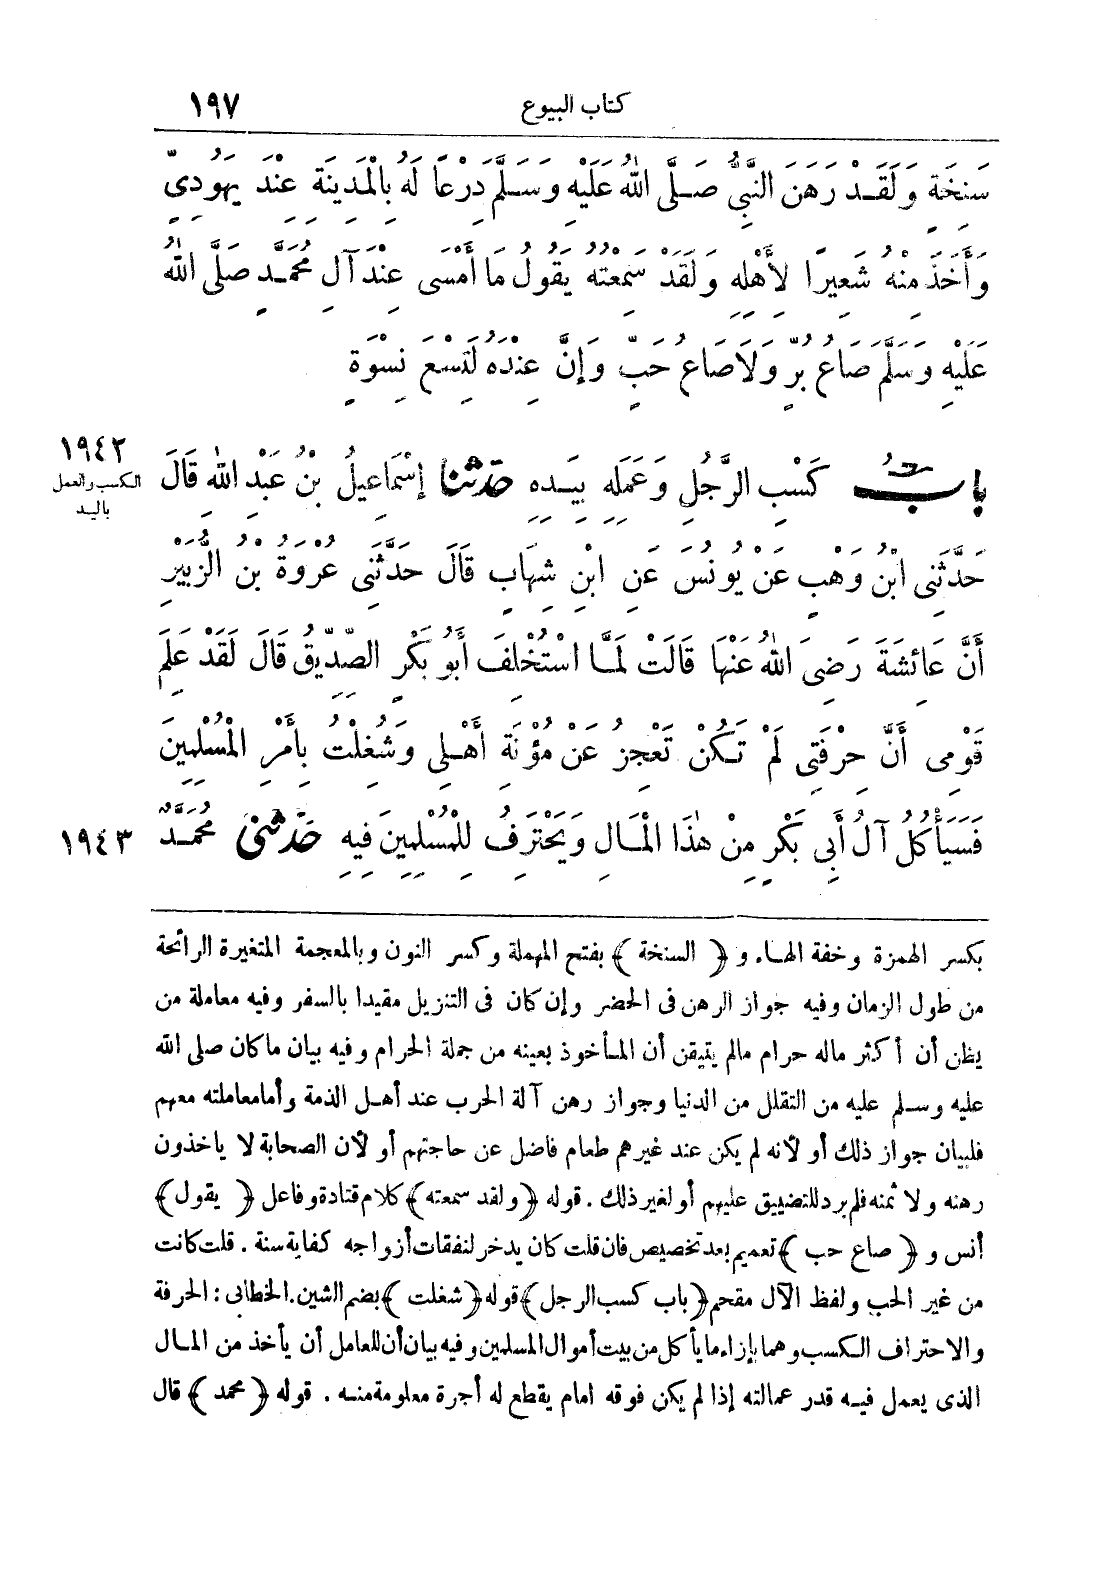 كتاب البيوع ١٩٧
سَنِخَةٍ وَلَقَدْ رَهَنَ النَّبِيُّ صَلَّى اللهُ عَلَيْهِ وَسَلَّمَ دِرْعًا لَهُ بِالْمَدِينَةِ عِنْدَ يَهُودِيٍّ
وَأَخَذَ مِنْهُ شَعِيرًا لِأَهْلِهِ وَلَقَدْ سَمِعْتُهُ يَقُولُ مَا أَمْسَى عِنْدَ آلِ مُحَمَّدٍ صَلَّى اللهُ
عَلَيْهِ وَسَلَّمَ صَاعُ بُرٍّ وَلَا صَاعُ حَبٍّ وَإِنَّ عِنْدَهُ لَتِسْعَ نِسْوَةٍ
١٩٤٢
الكسب والعمل
باليد
بابُ كَسْبِ الرَّجُلِ وَعَمَلِهِ بِيَدِهِ حَدَّثَنَا إِسْمَاعِيلُ بْنُ عَبْدِ اللهِ قَالَ
حَدَّثَنِى ابْنُ وَهْبٍ عَنْ يُونُسَ عَنِ ابْنِ شِهَابٍ قَالَ حَدَّثَنِى عُرْوَةُ بْنُ الزُّبَيْرِ
أَنَّ عَائِشَةَ رَضِىَ اللهُ عَنْهَا قَالَتْ لَمَّا اسْتُخْلِفَ أَبُو بَكْرٍ الصِّدِّيقُ قَالَ لَقَدْ عَلِمَ
قَوْمِى أَنَّ حِرْفَتِى لَمْ تَكُنْ تَعْجِزُ عَنْ مُؤْنَةِ أَهْلِى وَشُغِلْتُ بِأَمْرِ الْمُسْلِمِينَ
فَسَيَأْكُلُ آلُ أَبِى بَكْرٍ مِنْ هٰذَا الْمَالِ وَيَحْتَرِفُ لِلْمُسْلِمِينَ فِيهِ حَدَّثَنِى مُحَمَّدٌ ١٩٤٣
بكسر الهمزة وخفة الهاء و ﴿ السنخة ﴾ بفتح المهملة وكسر النون وبالمعجمة المتغيرة الرائحة
من طول الزمان وفيه جواز الرهن فى الحضر وإن كان فى التنزيل مقيدا بالسفر وفيه معاملة من
يظن أن أكثر ماله حرام مالم يتيقن أن المأخوذ بعينه من جملة الحرام وفيه بيان ماكان صلى الله
عليه وسلم عليه من التقلل من الدنيا وجواز رهن آلة الحرب عند أهل الذمة وأما معاملته معهم
فلبيان جواز ذلك أو لأنه لم يكن عند غيرهم طعام فاضل عن حاجتهم أو لأن الصحابة لا ياخذون
رهنه ولا ثمنه فلم يرد للتضييق عليهم أو لغير ذلك . قوله ﴿ ولقد سمعته ﴾ كلام قتادة وفاعل ﴿ يقول ﴾
أنس و ﴿ صاع حب ﴾ تعميم بعد تخصيص فان قلت كان يدخر لنفقات أزواجه كفاية سنة . قلت كانت
من غير الحب ولفظ الآل مقحم ﴿ باب كسب الرجل ﴾ قوله ﴿ شغلت ﴾ بضم الشين . الخطابى : الحرفة
والاحتراف الكسب وهما بإزاء ما يأكل من بيت أموال المسلمين وفيه بيان أن للعامل أن يأخذ من المال
الذى يعمل فيه قدر عمالته إذا لم يكن فوقه امام يقطع له أجرة معلومة منه . قوله ﴿ محمد ﴾ قال